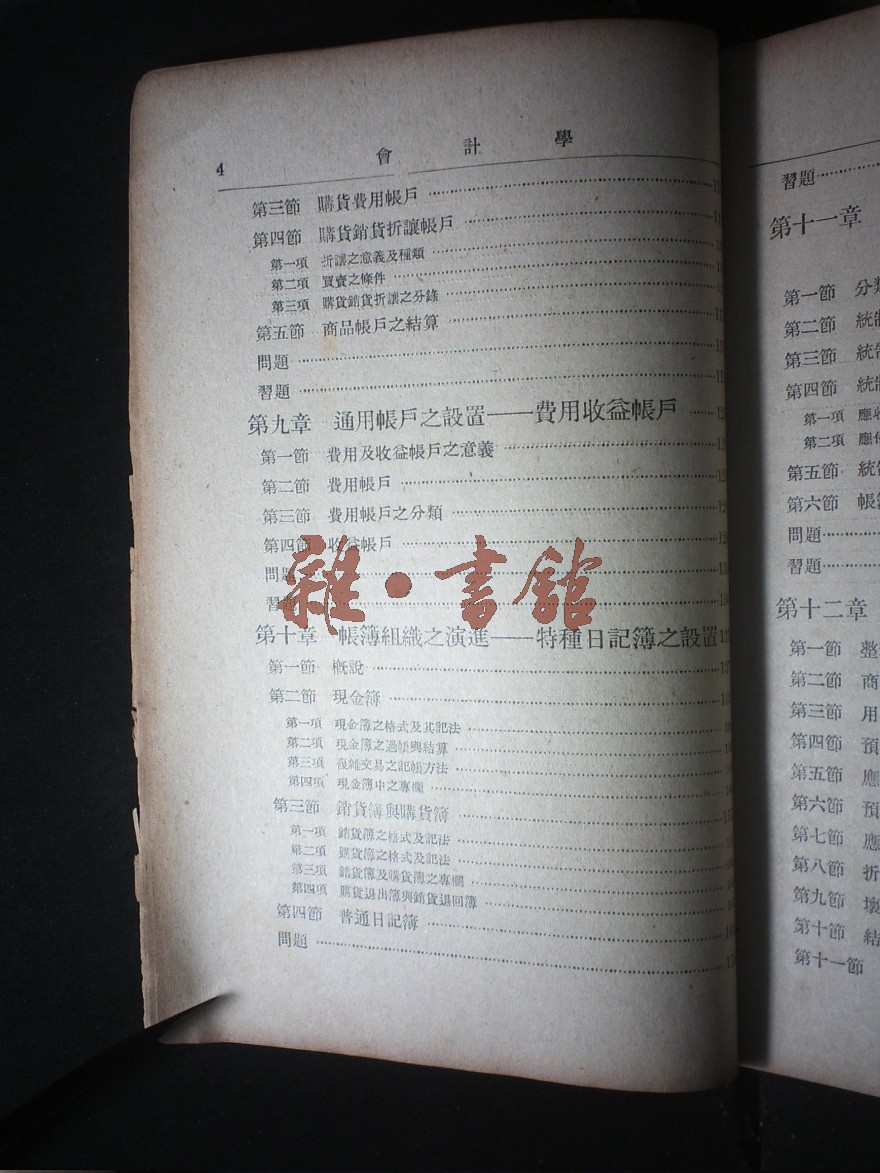 4 會計學
第三節 購貨費用帳戶
第四節 購貨銷貨折讓帳戶
第一項 折讓之意義及種類
第二項 買賣之條件
第三項 購貨銷貨折讓之分錄
第五節 商品帳戶之結算
問題
習題
第九章 通用帳戶之設置——費用收益帳戶
第一節 費用及收益帳戶之意義
第二節 費用帳戶
第三節 費用帳戶之分類
第四節 收益帳戶
問題
習題
雜·書館
第十章 帳簿組織之演進——特種日記簿之設置
第一節 概說
第二節 現金簿
第一項 現金簿之格式及其記法
第二項 現金簿之過帳與結算
第三項 複雜交易之記帳方法
第四項 現金簿中之專欄
第三節 銷貨簿與購貨簿
第一項 銷貨簿之格式及記法
第二項 購貨簿之格式及記法
第三項 銷貨簿及購貨簿之專欄
第四項 購貨退出簿與銷貨退回簿
第四節 普通日記簿
問題
習題
第十一章
第一節 分類
第二節 統制
第三節 統制
第四節 統制
第一項 應收
第二項 應付
第五節 統制
第六節 帳簿
問題
習題
第十二章
第一節 整
第二節 商
第三節 用
第四節 預
第五節 應
第六節 預
第七節 應
第八節 折
第九節 壞
第十節 結
第十一節